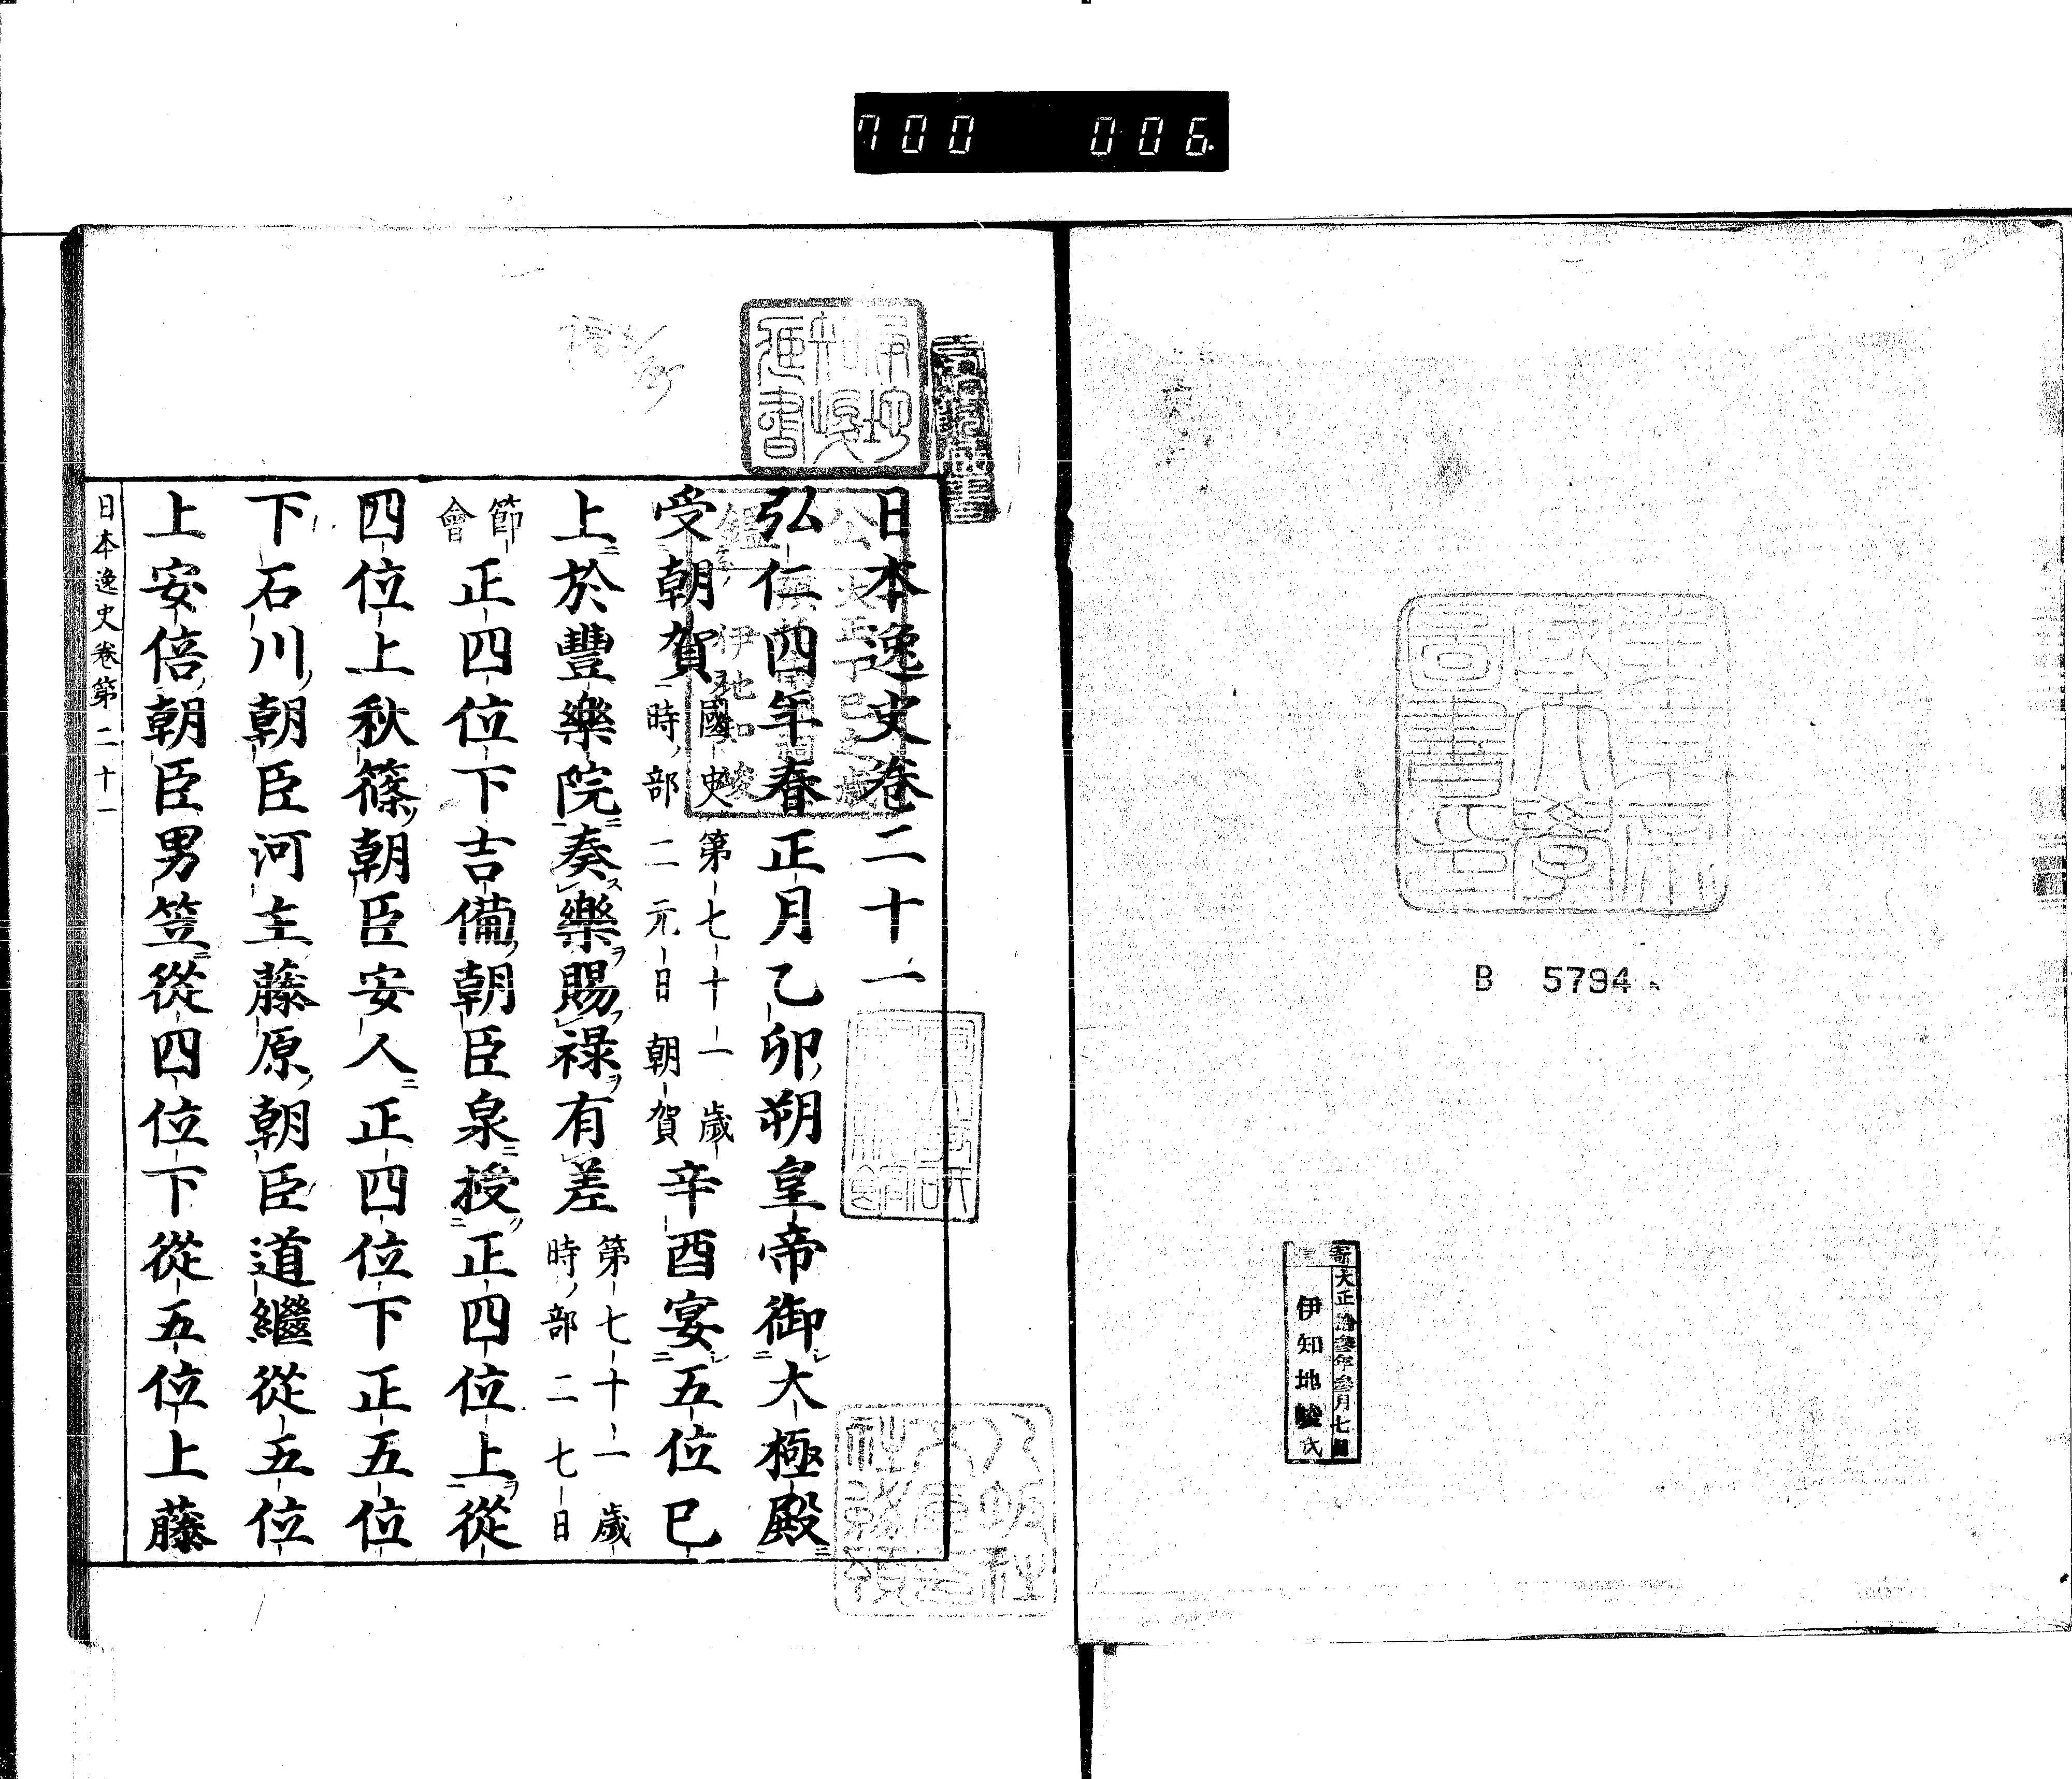 700 006.
B 5794
大正拾參年參月七日
伊知地駿氏
日本逸史卷二十一
弘仁四年春正月乙卯朔皇帝御大極殿
受朝賀國史第七十一歲時部二元日朝賀辛酉宴五位已
上於豐樂院奏樂賜祿有差第七十一歲時部二七日
節會正四位下吉備朝臣泉授正四位上從
四位上秋篠朝臣安人正四位下正五位
下石川朝臣河主藤原朝臣道繼從五位
上安倍朝臣男笠從四位下從五位上藤
日本逸史卷第二十一